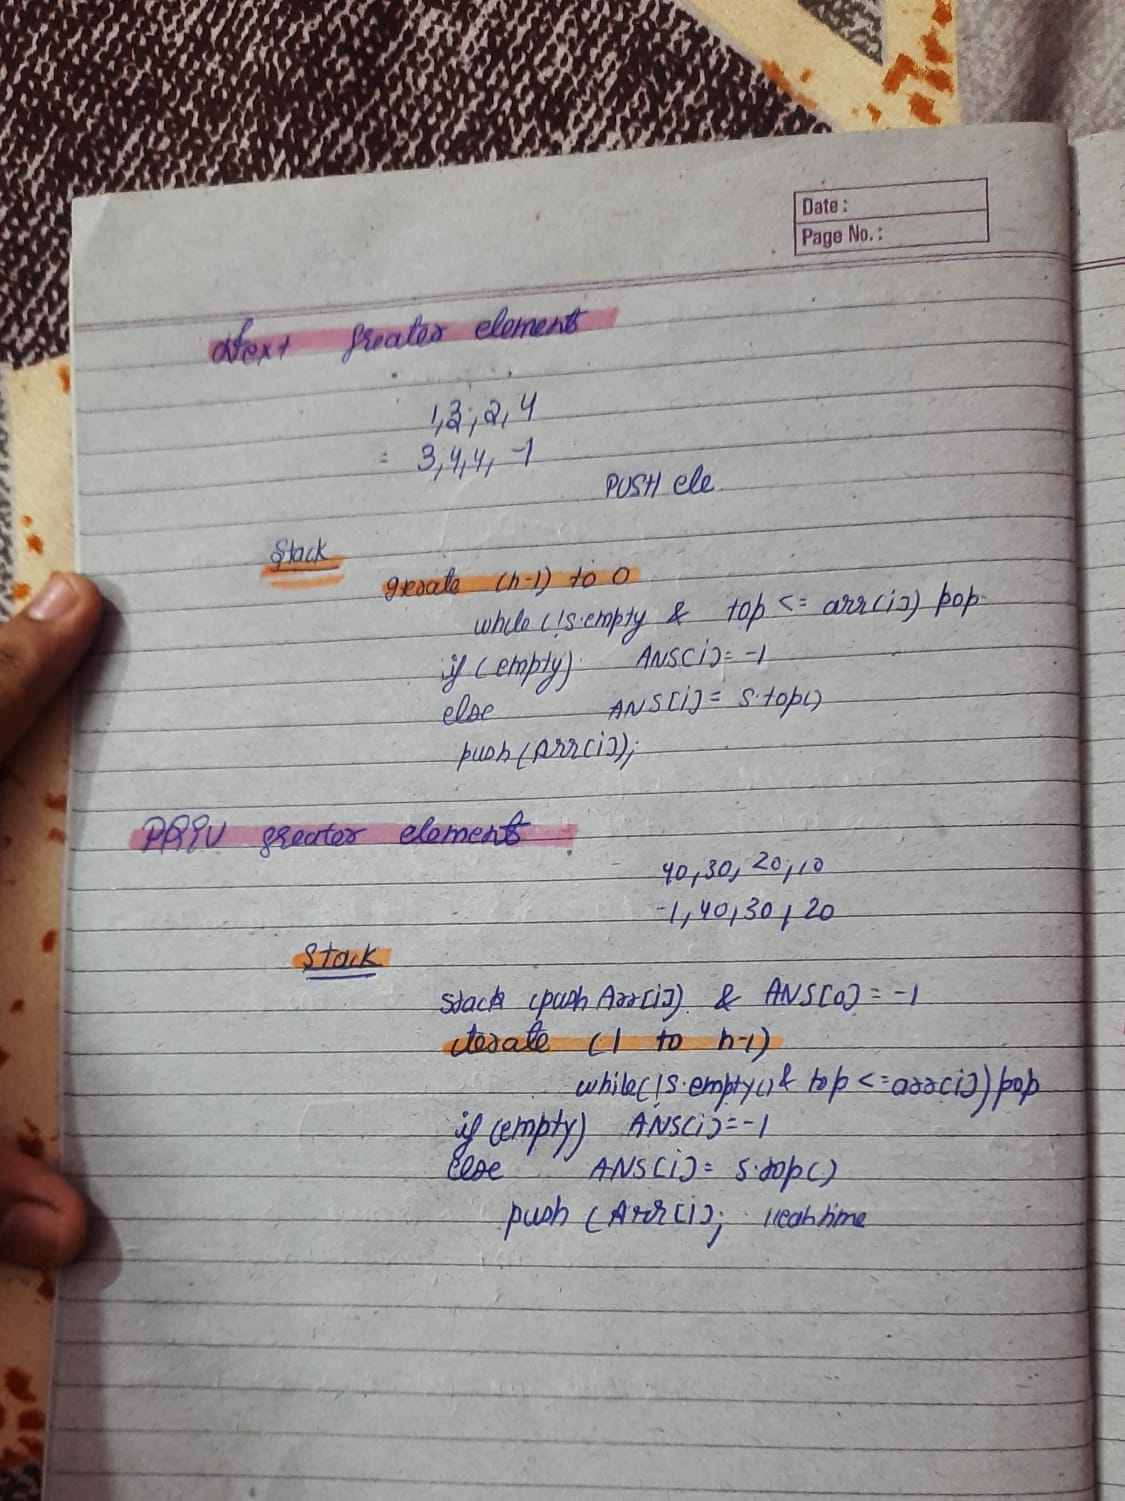 Date :
Page No. :
Next greater elements
1,3,2,4
= 3,4,4,-1
PUSH ele
Stack
iterate (n-1) to 0
while(!s.empty & top <= arr[i]) pop
if(empty) ANS[i]= -1
else ANS[i]= s.top()
push(Arr[i]);
PREV greater elements
40,30,20,10
-1,40,30,20
Stack
stack (push Arr[i]) & ANS[0] = -1
iterate (1 to n-1)
while(!s.empty() & top <= arr[i]) pop
if (empty) ANS[i]= -1
else ANS[i]= s.top()
push (Arr[i]; //each time